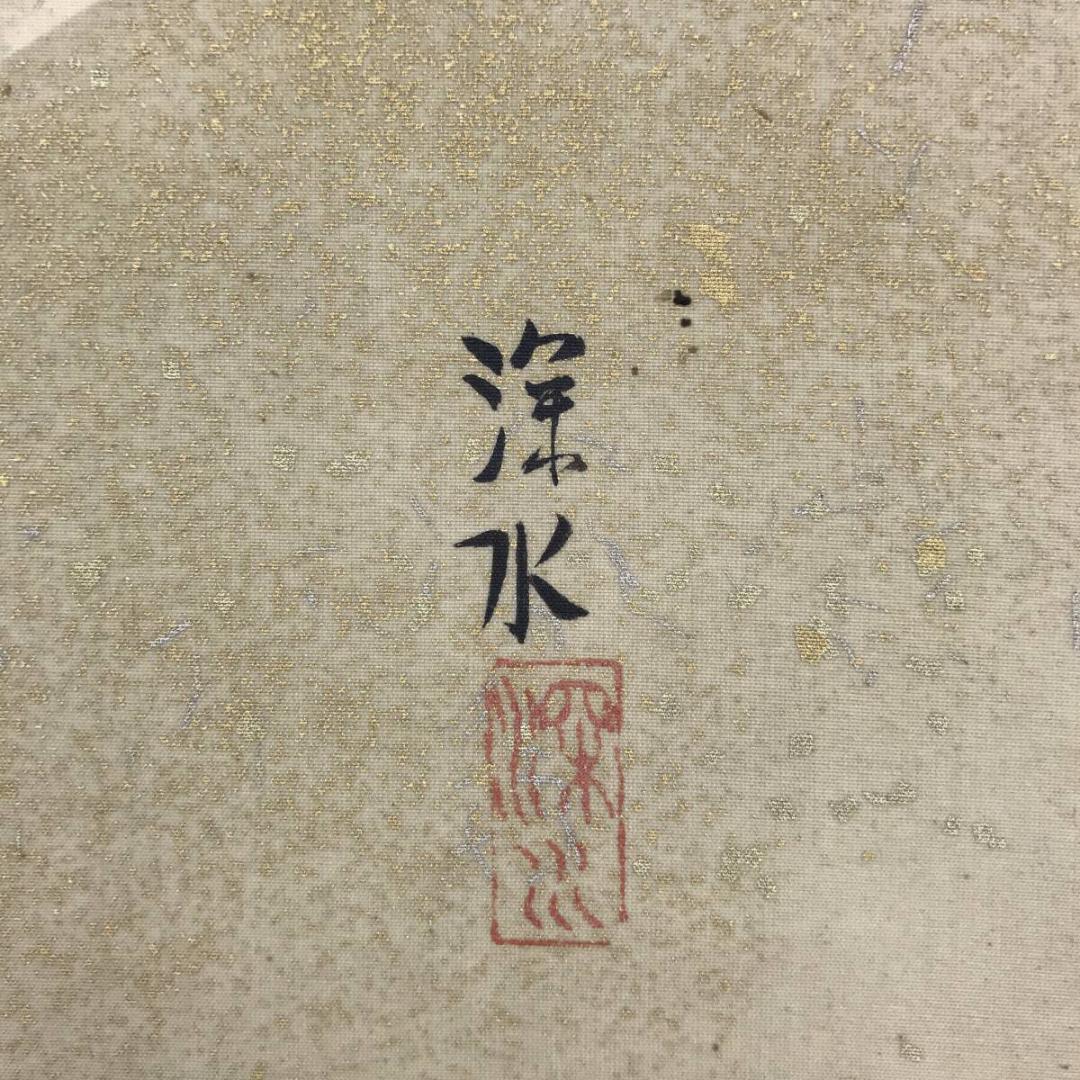 深
水
深水